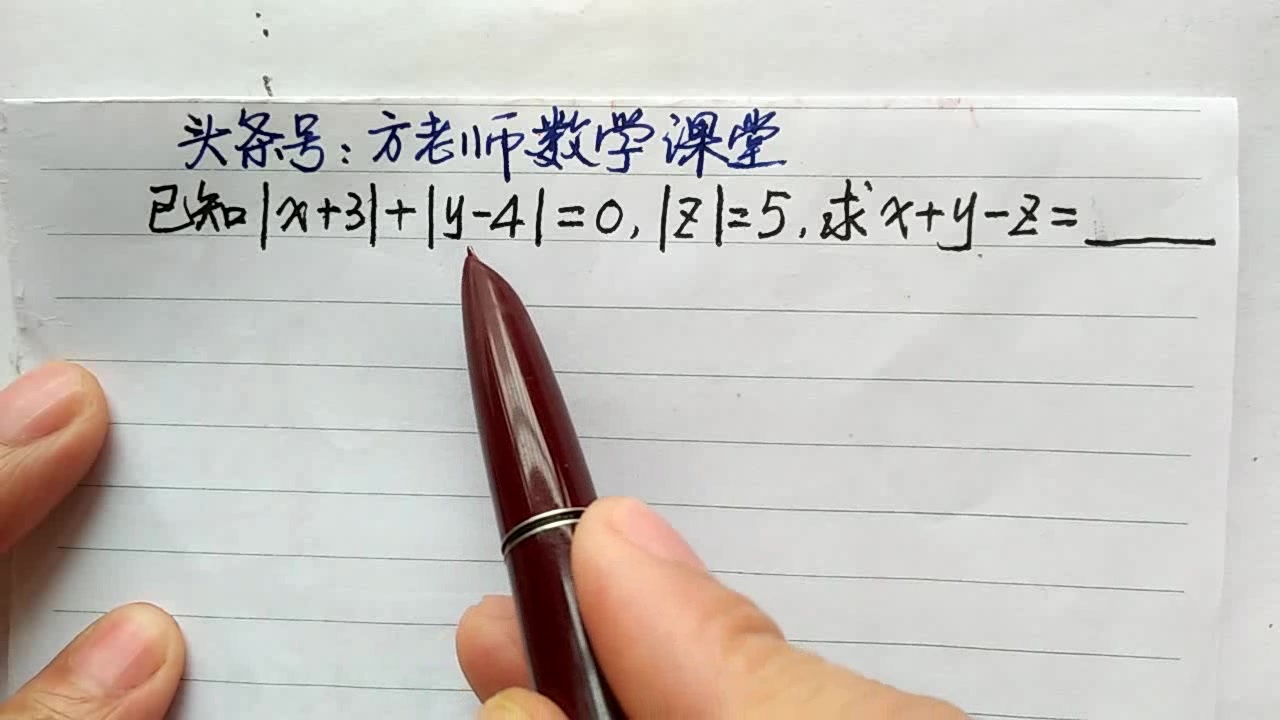 头条号：方老师数学课堂
已知|x+3|+|y-4|=0,|z|=5,求x+y-z=____